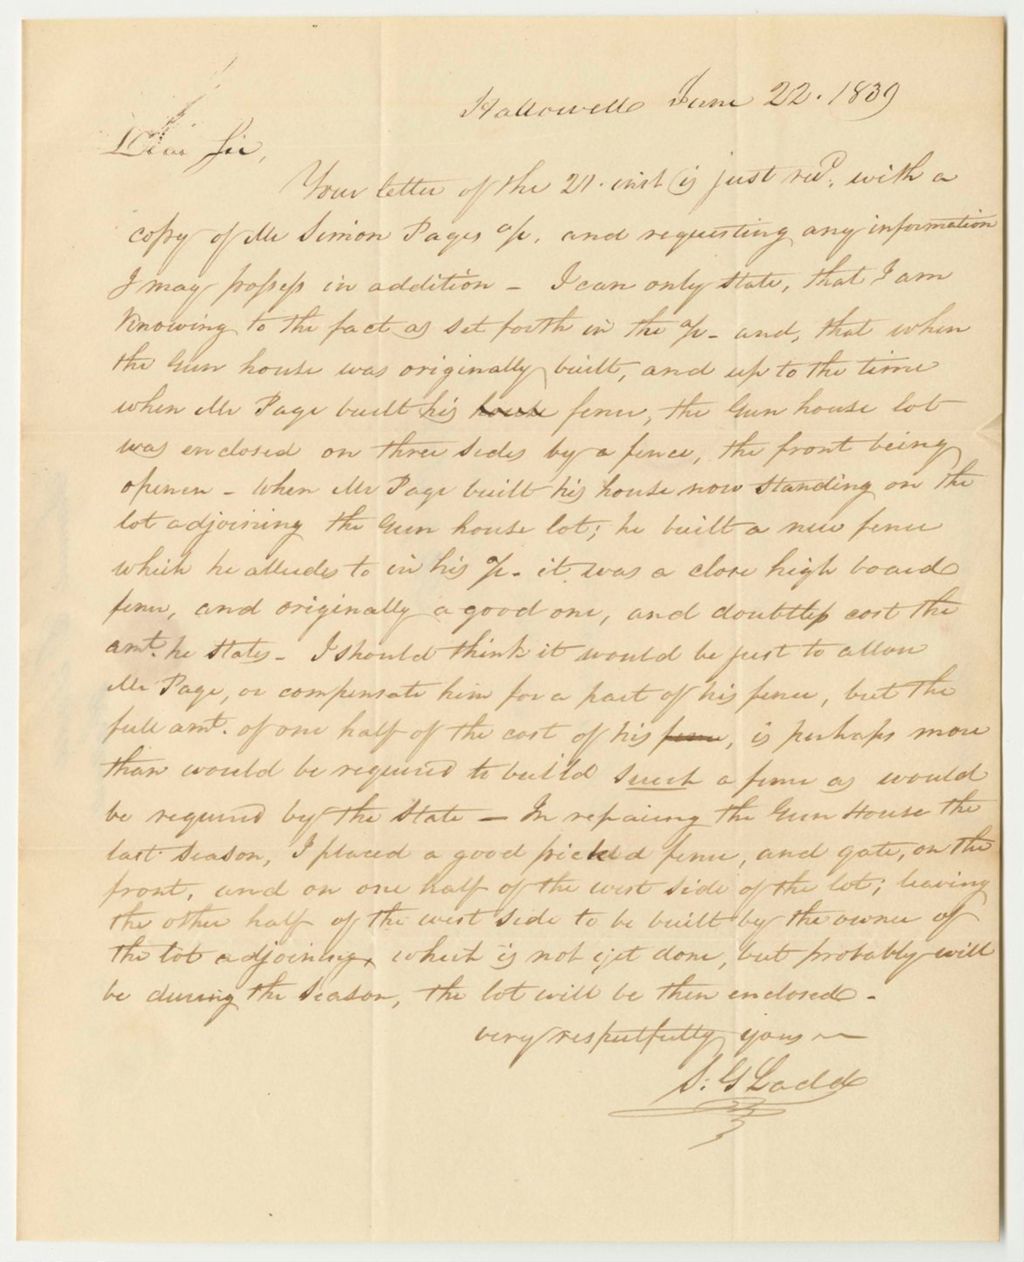 Hallowell June 22. 1839
Dear Sir,
Your letter of the 21. inst is just recd. with a
copy of Mr Simon Pages a/c, and requesting any information
I may possess in addition - I can only state, that I am
Knowing to the fact as set forth in the a/c - and, that when
the Gun house was originally built, and up to the time
when Mr Page built his house fence, the Gun house lot
was enclosed on three sides by a fence, the front being
open - When Mr Page built his house now standing on the
lot adjoining the Gun house lot; he built a new fence
which he alludes to in his a/c - it was a close high board
fence, and originally a good one, and doubtless cost the
amt. he states - I should think it would be just to allow
Mr Page, or compensate him for a part of his fence, but the
full amt. of one half of the cost of his fence, is perhaps more
than would be required to build such a fence as would
be required by the State — In repairing the Gun House the
last season, I placed a good picked fence, and gate, on the
front, and on one half of the west side of the lot; leaving
the other half of the west side to be built by the owner of
the lot adjoining, which is not yet done, but probably will
be during the season, the lot will be then enclosed -
very respectfully yours
S. G Ladd